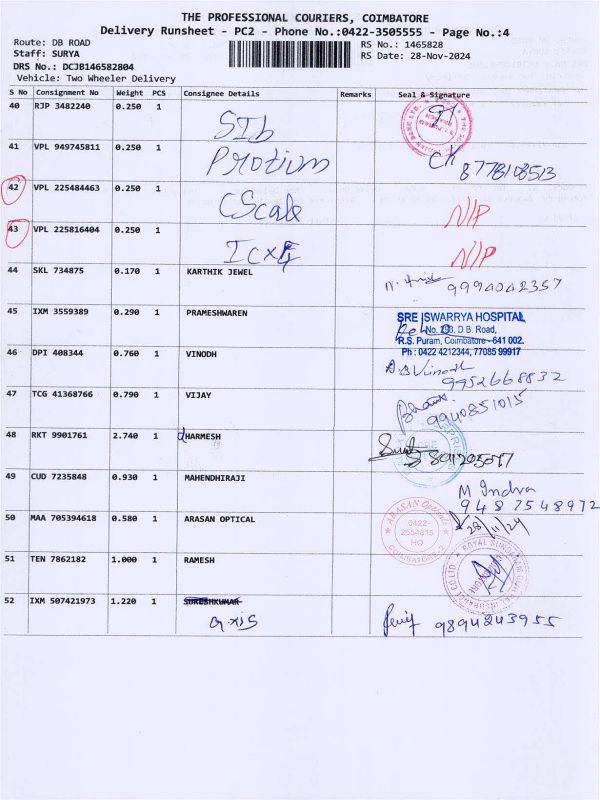 THE PROFESSIONAL COURIERS, COIMBATORE
Delivery Runsheet - PC2 - Phone No.:0422-3505555 - Page No.:4
Route: DB ROAD RS No.: 1465828
Staff: SURYA RS Date: 28-Nov-2024
DRS No.: DCJB146582804
Vehicle: Two Wheeler Delivery
S No Consignment No Weight PCS Consignee Details Remarks Seal & Signature
40 RJP 3482240 0.250 1 SIb
41 VPL 949745811 0.250 1 Protium 8778108513
42 VPL 225484463 0.250 1 CScale N/P
43 VPL 225816404 0.250 1 N/P
44 SKL 734875 0.170 1 KARTHIK JEWEL 9994042357
45 IXM 3559389 0.290 1 PRAMESHWAREN SRE ISWARRYA HOSPITAL
No. 203, D B. Road,
R.S. Puram, Coimbatore - 641 002.
Ph : 0422 4212344, 77085 99917
46 DPI 408344 0.760 1 VINODH Vinoth
9952668832
47 TCG 41368766 0.790 1 VIJAY 9940851015
48 RKT 9901761 2.740 1 dHARMESH
49 CUD 7235848 0.930 1 MAHENDHIRAJI M Indra
9487548972
50 MAA 705394618 0.580 1 ARASAN OPTICAL ARASAN Opticals
0422-
2554815
HO
COIMBATORE-2
28/11/24
51 TEN 7862182 1.000 1 RAMESH ROYAL SUNDARAM
52 IXM 507421973 1.220 1 SURESHKUMAR
axis 9894243955